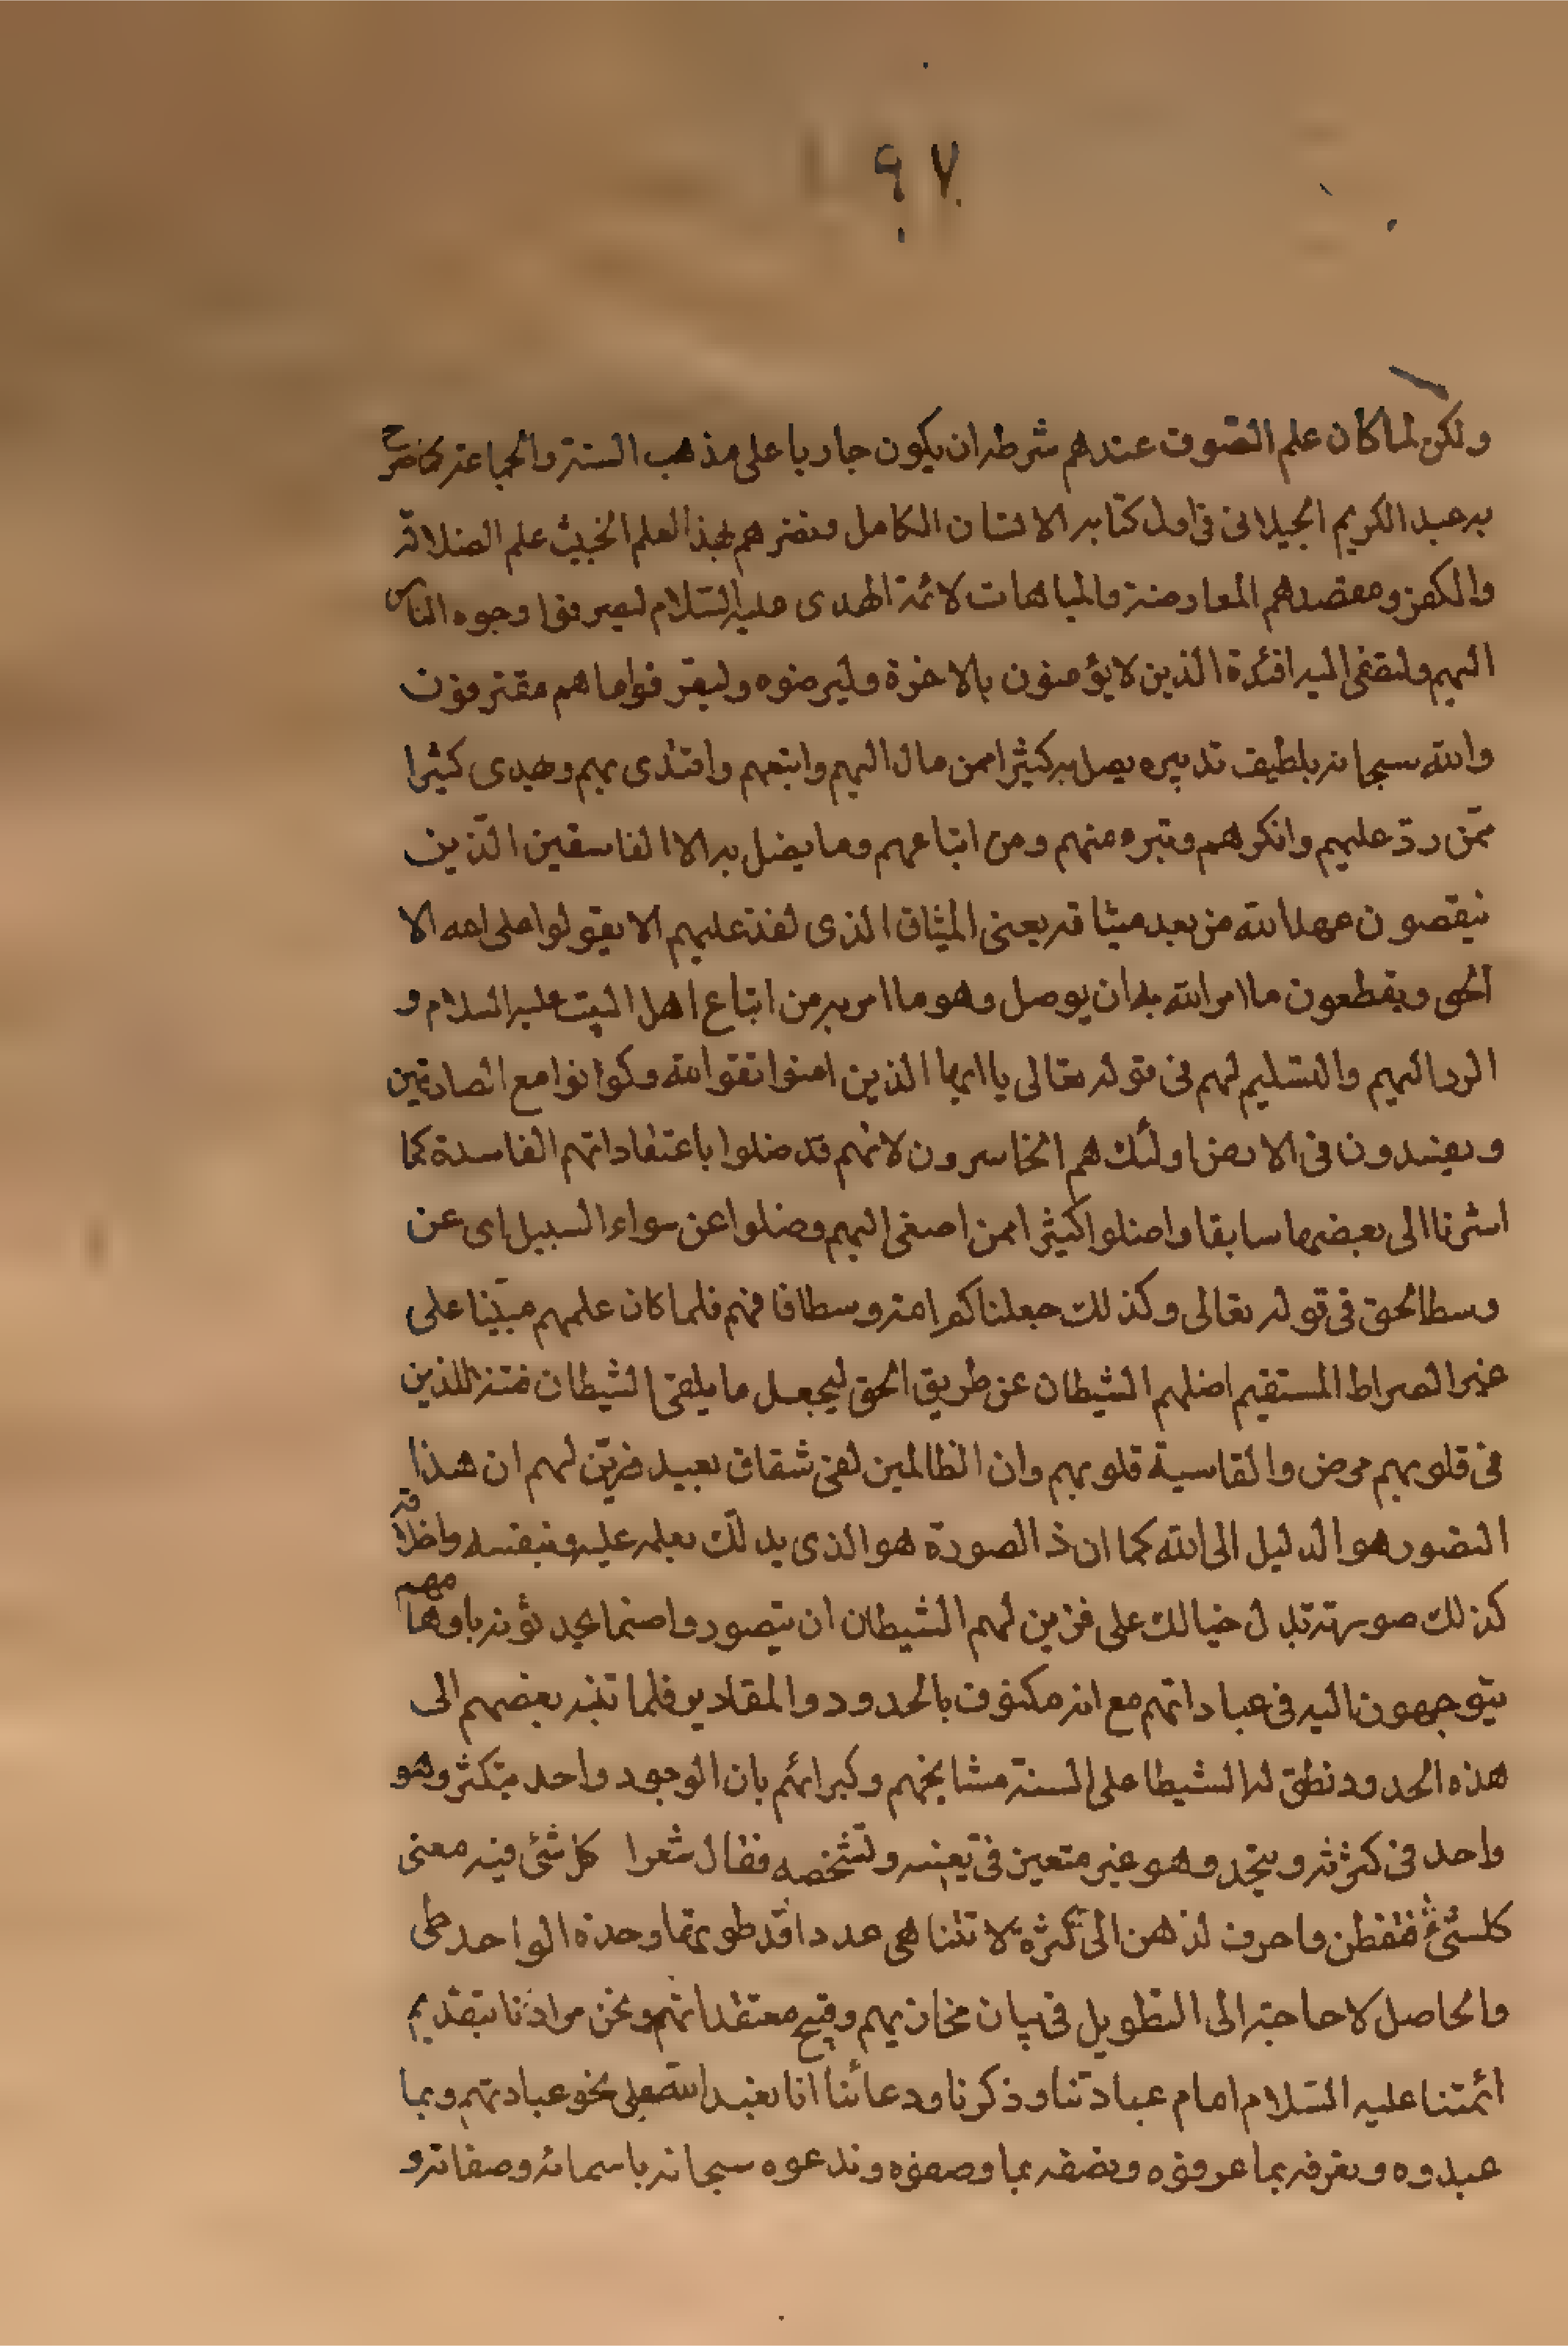 ٩٧
ولكن لما كان علم التصوف عندهم شرطه ان يكون جاريا على مذهب السنة والجماعة كما صرح
به عبد الكريم الجيلانى فى اول كتابه الانسان الكامل وغرضهم بهذا العلم الخبيث علم الضلالة
والكفر ومقصدهم المعارضة والمباهات لائمة الهدى عليه السلام ليصرفوا وجوه الناس
اليهم ولتصغى اليه افئدة الذين لا يؤمنون بالاخرة وليرضوه وليقترفوا ما هم مقترفون
والله سبحانه بلطيف تدبيره يضل به كثيرا ممن مال اليهم واتبعهم واقتدى بهم وهدى كثيرا
ممّن ردّ عليهم وانكرهم وتبرء منهم ومن اتباعهم وما يضل به الا الفاسقين الّذين
ينقضون عهد الله من بعد ميثاقه يعنى الميثاق الذى اخذ عليهم الا يقولوا على الله الا
الحق ويقطعون ما امر الله به ان يوصل وهو ما امر به من اتباع اهل البيت عليه السلام و
الرد اليهم والتسليم لهم فى قوله تعالى يا ايها الذين امنوا اتقوا الله وكونوا مع الصادقين
ويفسدون فى الارض اولئك هم الخاسرون لانهم قد ضلوا باعتقاداتهم الفاسدة كما
اشرنا الى بعضها سابقا واضلوا كثيرا ممن اصغى اليهم وضلوا عن سواء السبيل اى عن
وسط الحق فى قوله تعالى وكذلك جعلناكم امة وسطا فافهم فلما كان علمهم مبنيّا على
غير الصراط المستقيم اضلهم الشيطان عن طريق الحق ليجعل ما يلقى الشيطان فتنة للذين
فى قلوبهم مرض والقاسية قلوبهم وان الظالمين لفى شقاق بعيد فزيّن لهم ان هذا
التصور هو الدليل الى الله كما ان ذا الصورة هو الذى يدلّك بعلمه عليه وبنفسه واخلاقه
كذلك صورته تدل خيالك على فزين لهم الشيطان ان يتصوروا صنما يحدثونه باوهامهم
يتوجهون اليه فى عباداتهم مع انه مكنوف بالحدود والمقادير فلما تنبه بعضهم الى
هذه الحدود نطق له الشيطا على السنة مشايخهم وكبرائهم بان الوجود واحد متكثر وهو
واحد فى كثرته ويتحد وهو غير متعين فى تعينه وتشخصه فقال شعرا كل شئ فيه معنى
كلشئ فتفطن واصرف لذهن الى كثرة لا تتناهى عددا قد طوتها وحدة الواحد طى
والحاصل لا حاجة الى التطويل فى بيان مخازيهم وقبيح معتقداتهم ونحن مرادنا بتقديم
ائمتنا عليه السّلام امام عبادتنا وذكرنا ودعائنا انا نعبد الله على نحو عبادتهم وبما
عبدوه ونعرفه بما عرفوه ونصفه بما وصفوه وندعوه سبحانه باسمائه وصفاته و